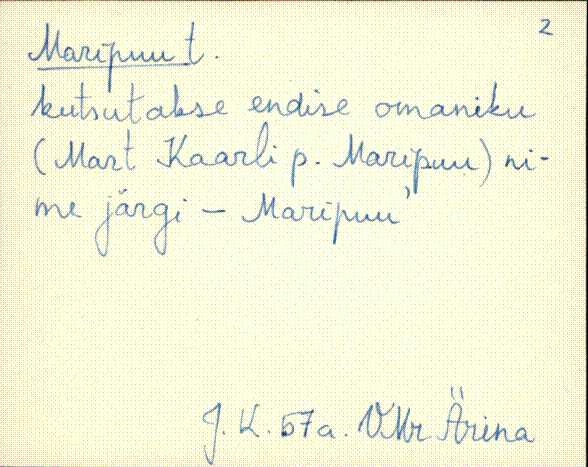 2
Maripuu t.
kutsutakse endise omaniku
(Mart Kaarli p. Maripuu) ni-
me järgi – Maripuu'
J. K. 57a. VMr Ärina